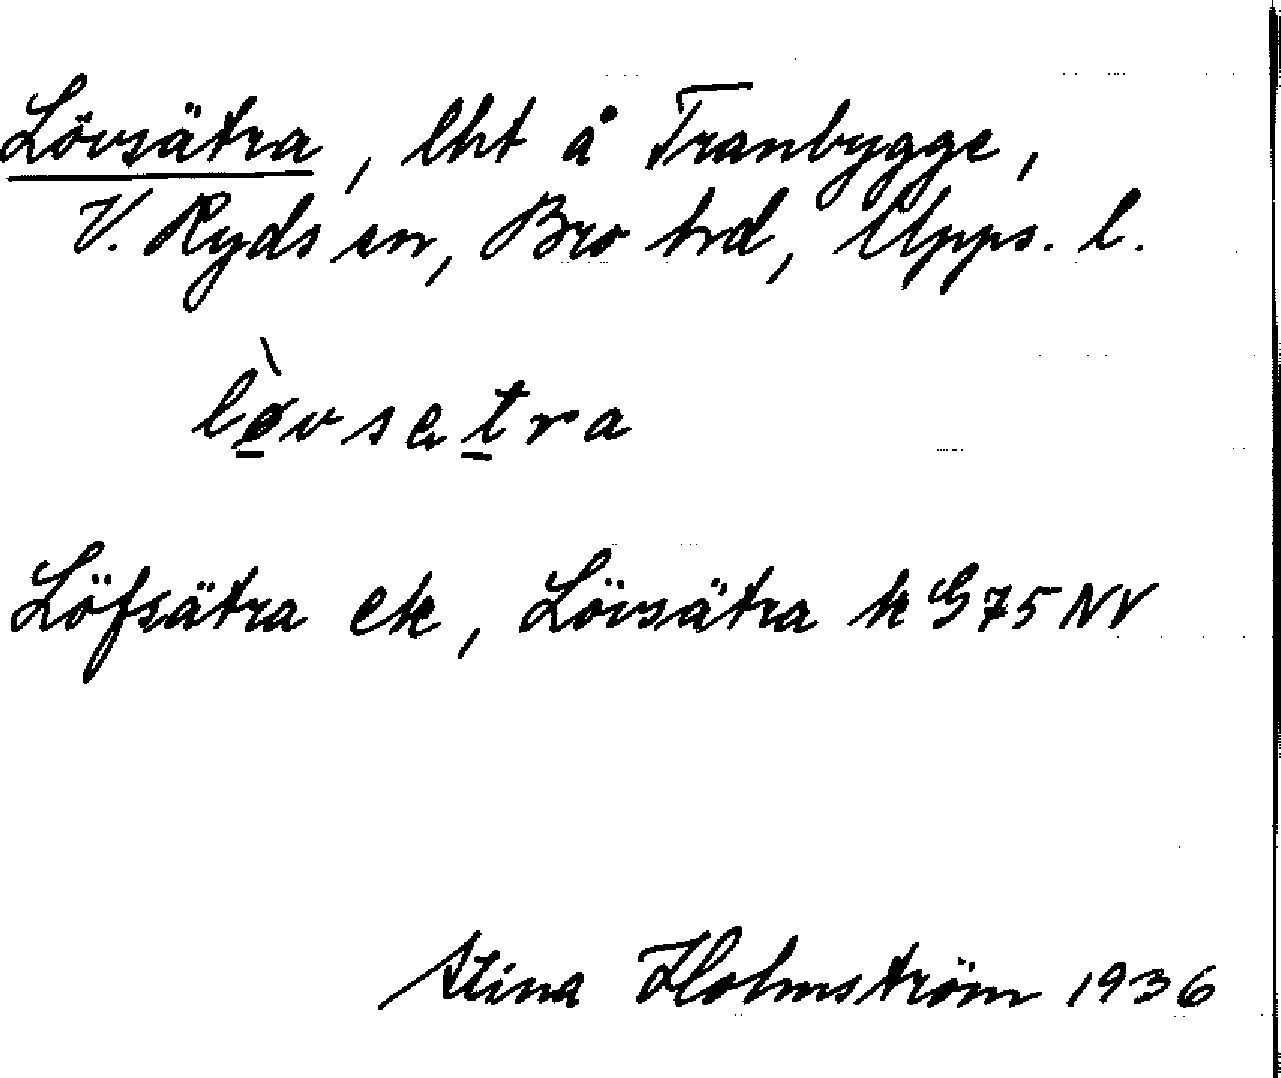 Lövsätra, lht å Tranbygge,
V. Ryds sn, Bro hd, Upps. l.
lø̀vsætra
Löfsätra ek, Lövsätra k G 75 NV
Stina Holmström 1936